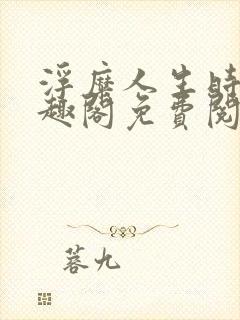 浮靡人生時
趣閣免費閱
蓉九